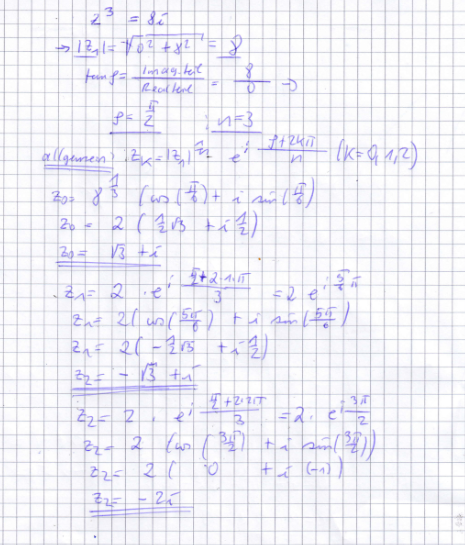 z³ = 8i
→ |z₁| = √(0² + 8²) = 8
tan φ = Imag.teil / Realteil = 8/0 →
φ = π/2 ; n = 3
allgemein: z_K = |z₁|^(1/n) e^(i (φ+2kπ)/n) (K=0,1,2)
z₀ = 8^(1/3) (cos(π/6) + i sin(π/6))
z₀ = 2 (1/2 √3 + i 1/2)
z₀ = √3 + i
z₁ = 2 · e^(i (π/2 + 2·1·π)/3) = 2 e^(i 5/6 π)
z₁ = 2(cos(5π/6) + i sin(5π/6))
z₁ = 2(-1/2 √3 + i 1/2)
z₂ = -√3 + i
z₂ = 2 · e^(i (π/2 + 2·2π)/3) = 2 · e^(i 3π/2)
z₂ = 2 (cos(3π/2) + i sin(3π/2))
z₂ = 2 ( 0 + i (-1) )
z₂ = -2i